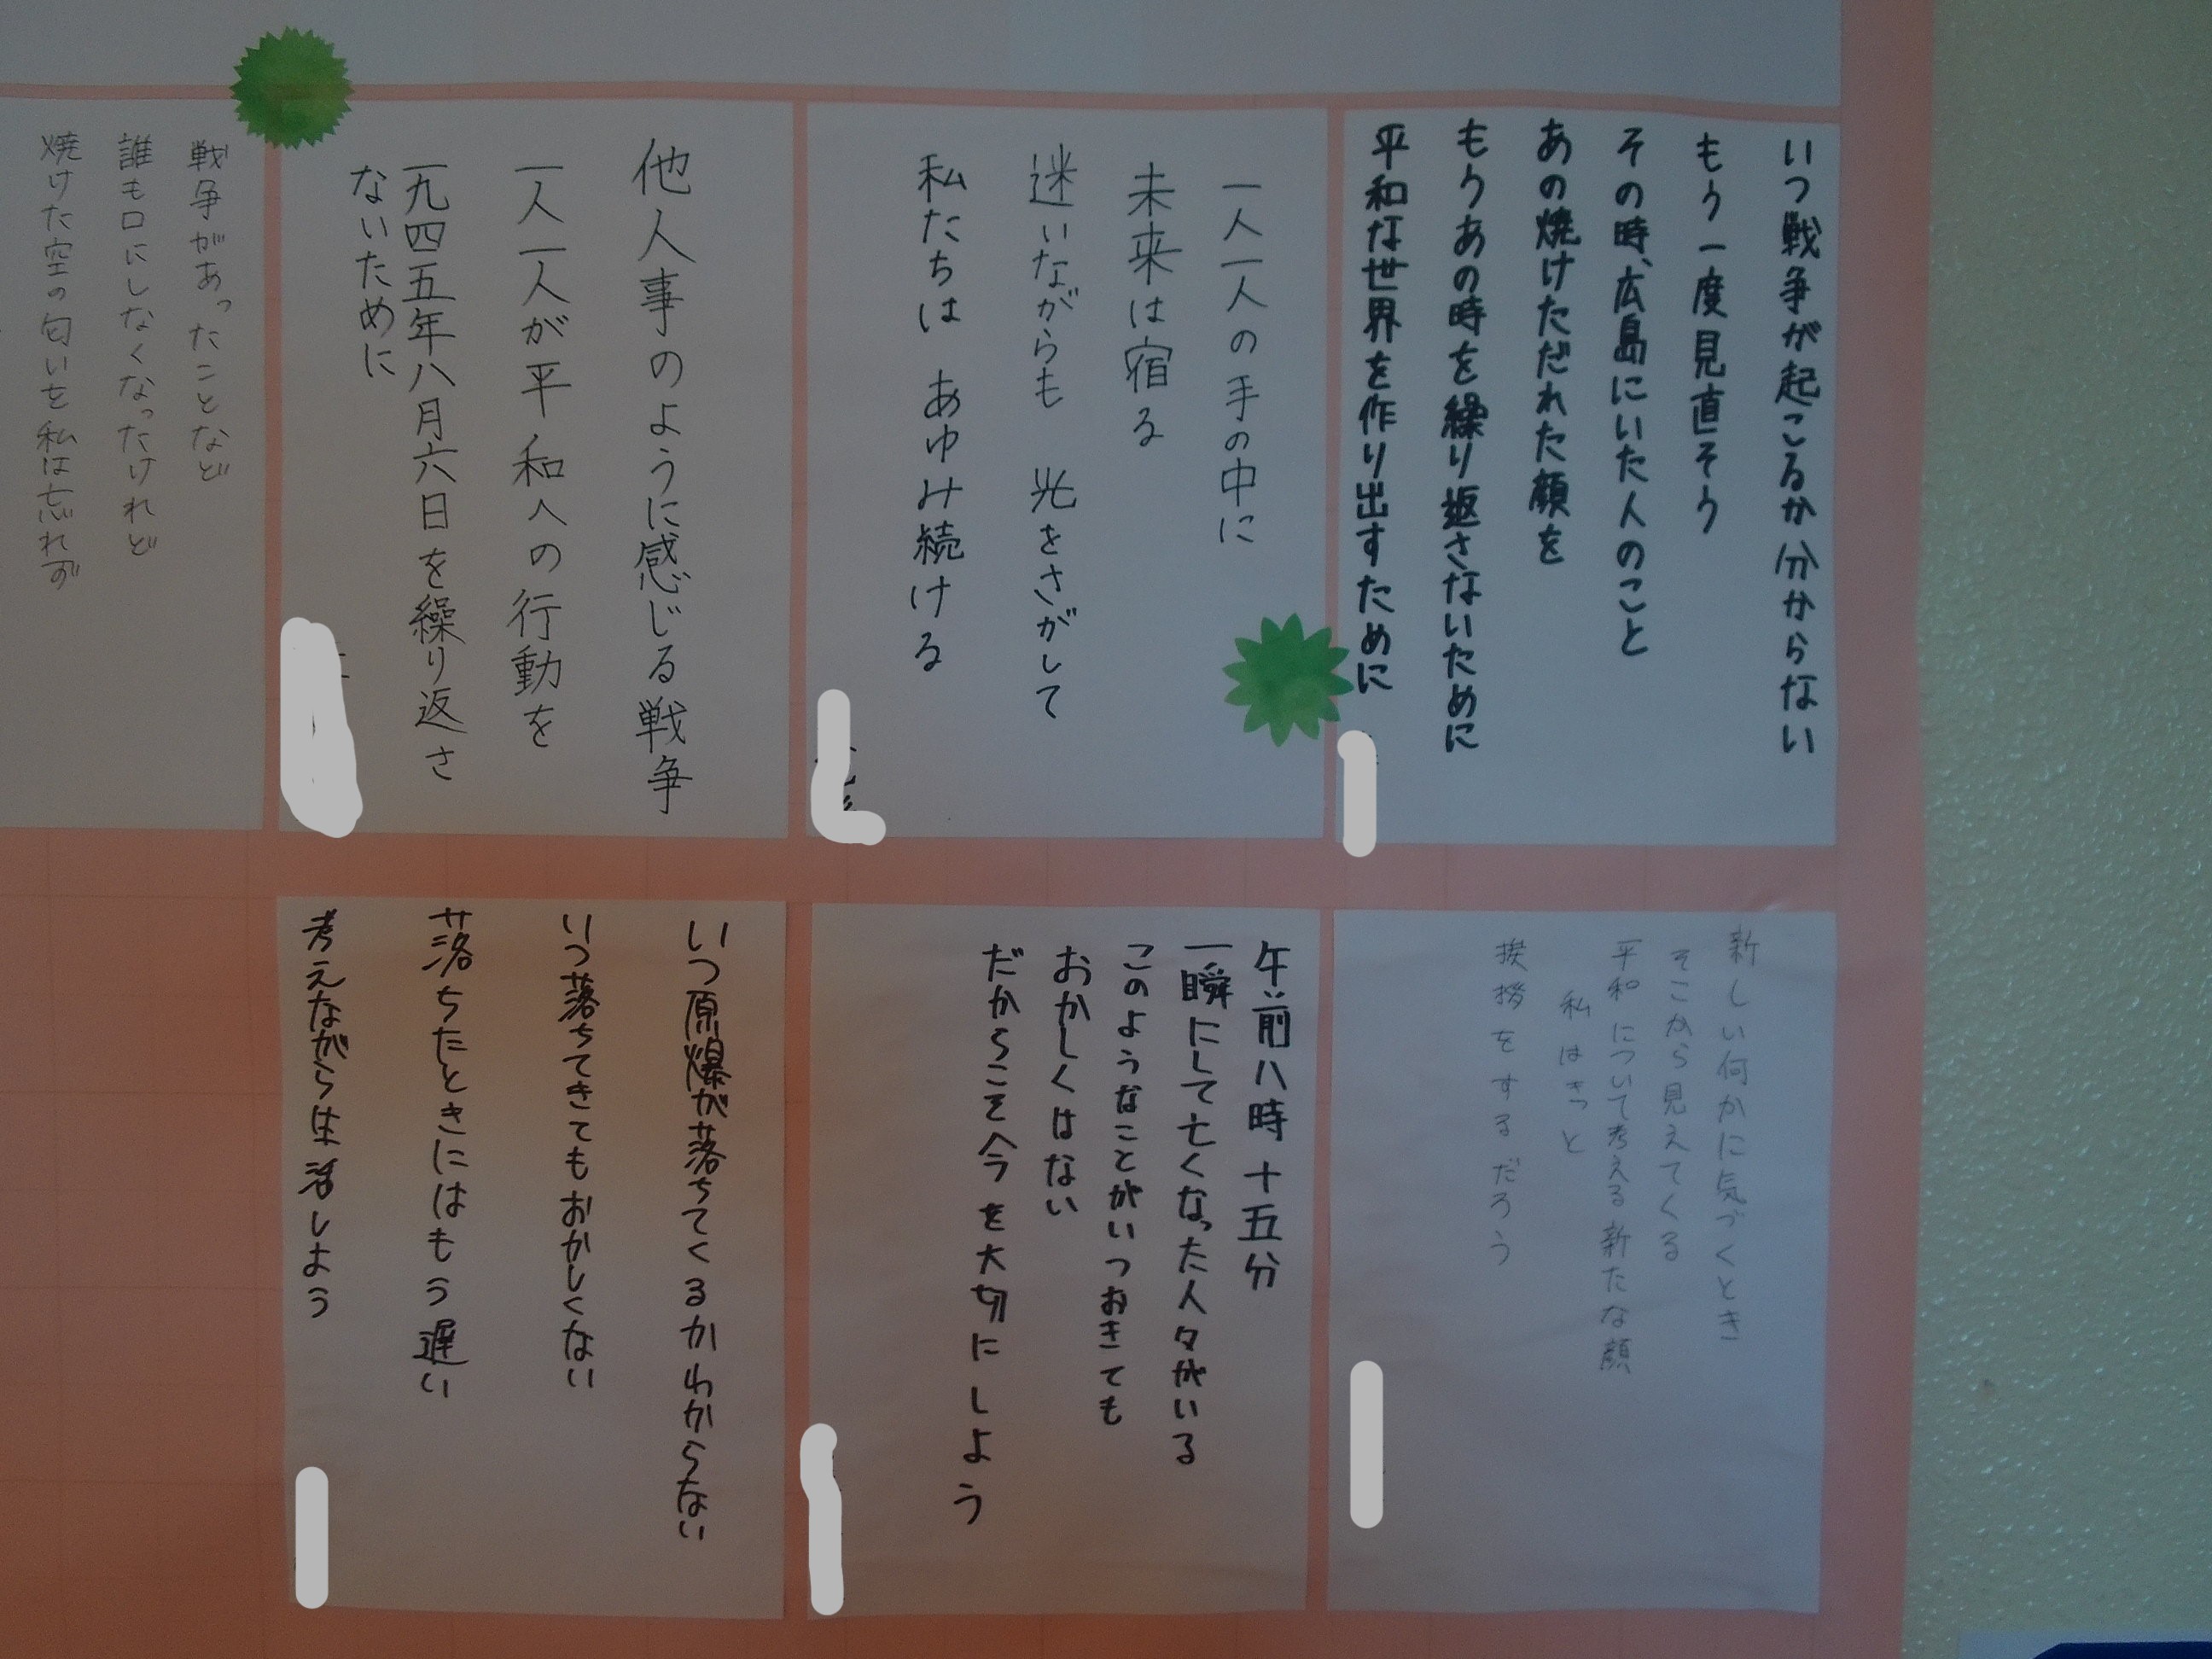 いつ戦争が起こるか分からない
もう一度見直そう
その時、広島にいた人のこと
あの焼けただれた顔を
もうあの時を繰り返さないために
平和な世界を作り出すために
一人一人の手の中に
未来は宿る
迷いながらも 光をさがして
私たちは あゆみ続ける
他人事のように感じる戦争
一人一人が平和への行動を
一九四五年八月六日を繰り返さ
ないために
戦争があったことなど
誰も口にしなくなったけれど
焼けた空の匂いを私は忘れず
新しい何かに気づくとき
そこから見えてくる
平和について考える新たな顔
私はきっと
挨拶をするだろう
午前八時十五分
一瞬にして亡くなった人々がいる
このようなことがいつおきても
おかしくはない
だからこそ今を大切にしよう
いつ原爆が落ちてくるかわからない
いつ落ちてきてもおかしくない
落ちたときにはもう遅い
考えながら生活しよう